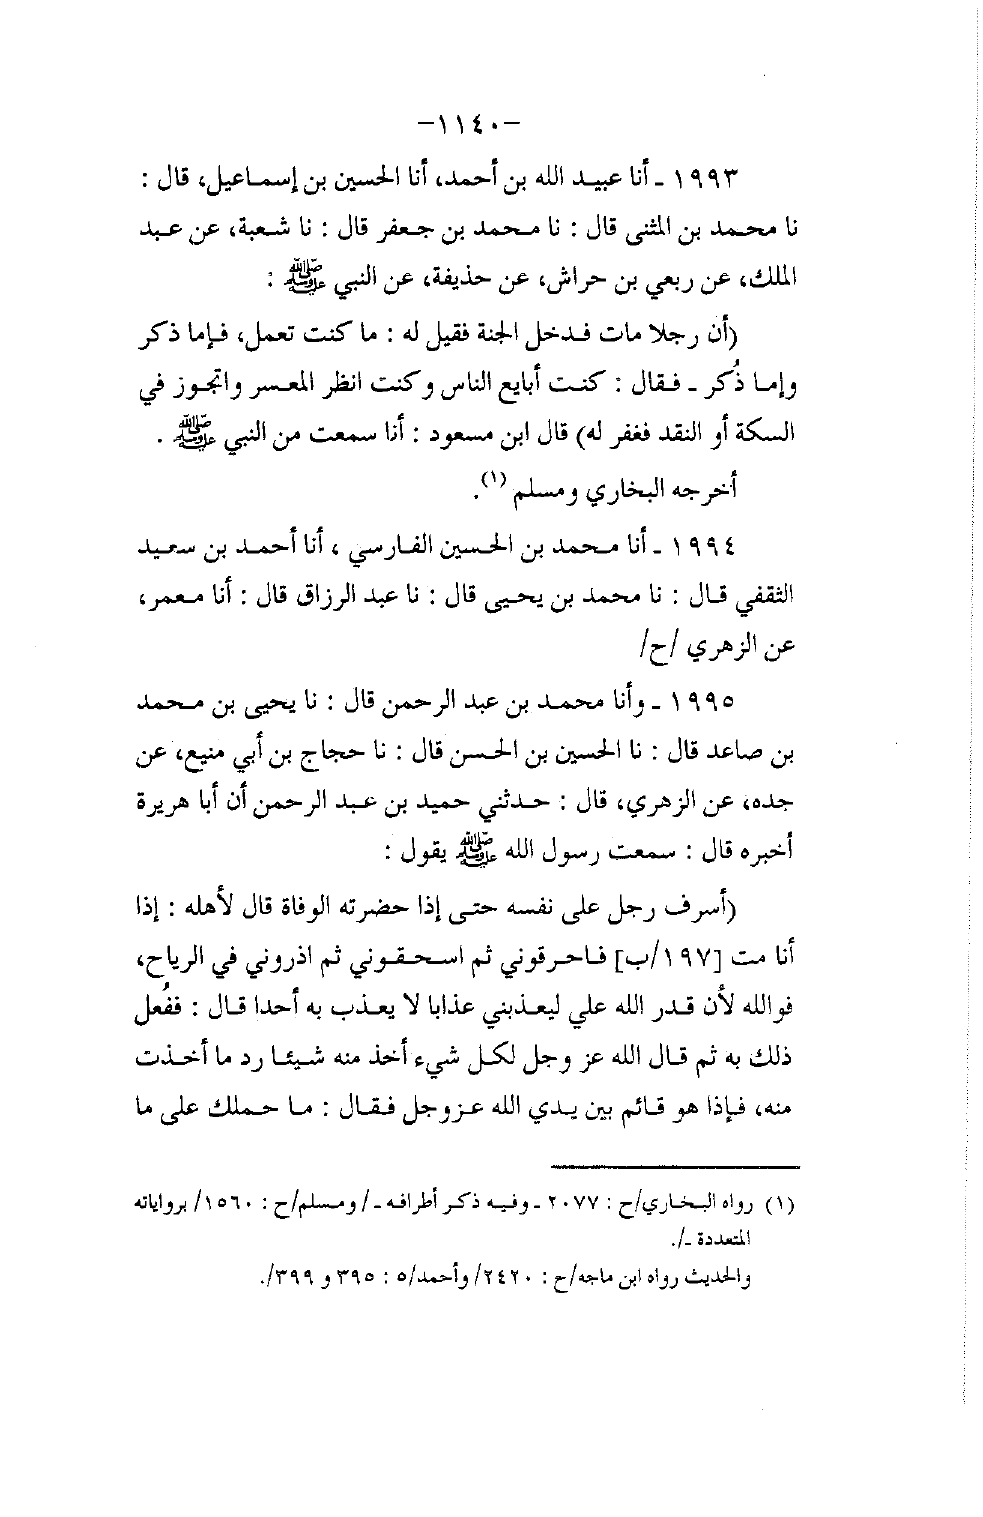 -١١٤٠-
١٩٩٣ ـ أنا عبيد الله بن أحمد، أنا الحسين بن إسماعيل، قال :
نا محمد بن المثنى قال : نا محمد بن جعفر قال : نا شعبة، عن عبد
الملك، عن ربعي بن حراش، عن حذيفة، عن النبي ﷺ :
(أن رجلا مات فدخل الجنة فقيل له : ما كنت تعمل، فإما ذكر
وإما ذُكر ـ فقال : كنت أبايع الناس وكنت انظر المعسر واتجوز في
السكة أو النقد فغفر له) قال ابن مسعود : أنا سمعت من النبي ﷺ .
أخرجه البخاري ومسلم (١).
١٩٩٤ ـ أنا محمد بن الحسين الفارسي ، أنا أحمد بن سعيد
الثقفي قال : نا محمد بن يحيى قال : نا عبد الرزاق قال : أنا معمر،
عن الزهري /ح/
١٩٩٥ ـ وأنا محمد بن عبد الرحمن قال : نا يحيى بن محمد
بن صاعد قال : نا الحسين بن الحسن قال : نا حجاج بن أبي منيع، عن
جده، عن الزهري، قال : حدثني حميد بن عبد الرحمن أن أبا هريرة
أخبره قال : سمعت رسول الله ﷺ يقول :
(أسرف رجل على نفسه حتى إذا حضرته الوفاة قال لأهله : إذا
أنا مت [١٩٧/ب] فاحرقوني ثم اسحقوني ثم اذروني في الرياح،
فوالله لأن قدر الله علي ليعذبني عذابا لا يعذب به أحدا قال : ففُعل
ذلك به ثم قال الله عز وجل لكل شيء أخذ منه شيئا رد ما أخذت
منه، فإذا هو قائم بين يدي الله عزوجل فقال : ما حملك على ما
(١) رواه البخاري/ح : ٢٠٧٧ ـ وفيه ذكر أطرافه ـ/ ومسلم/ح : ١٥٦٠/ برواياته
المتعددة ـ/.
والحديث رواه ابن ماجه/ح : ٢٤٢٠/ وأحمد/٥ : ٣٩٥ و ٣٩٩/.